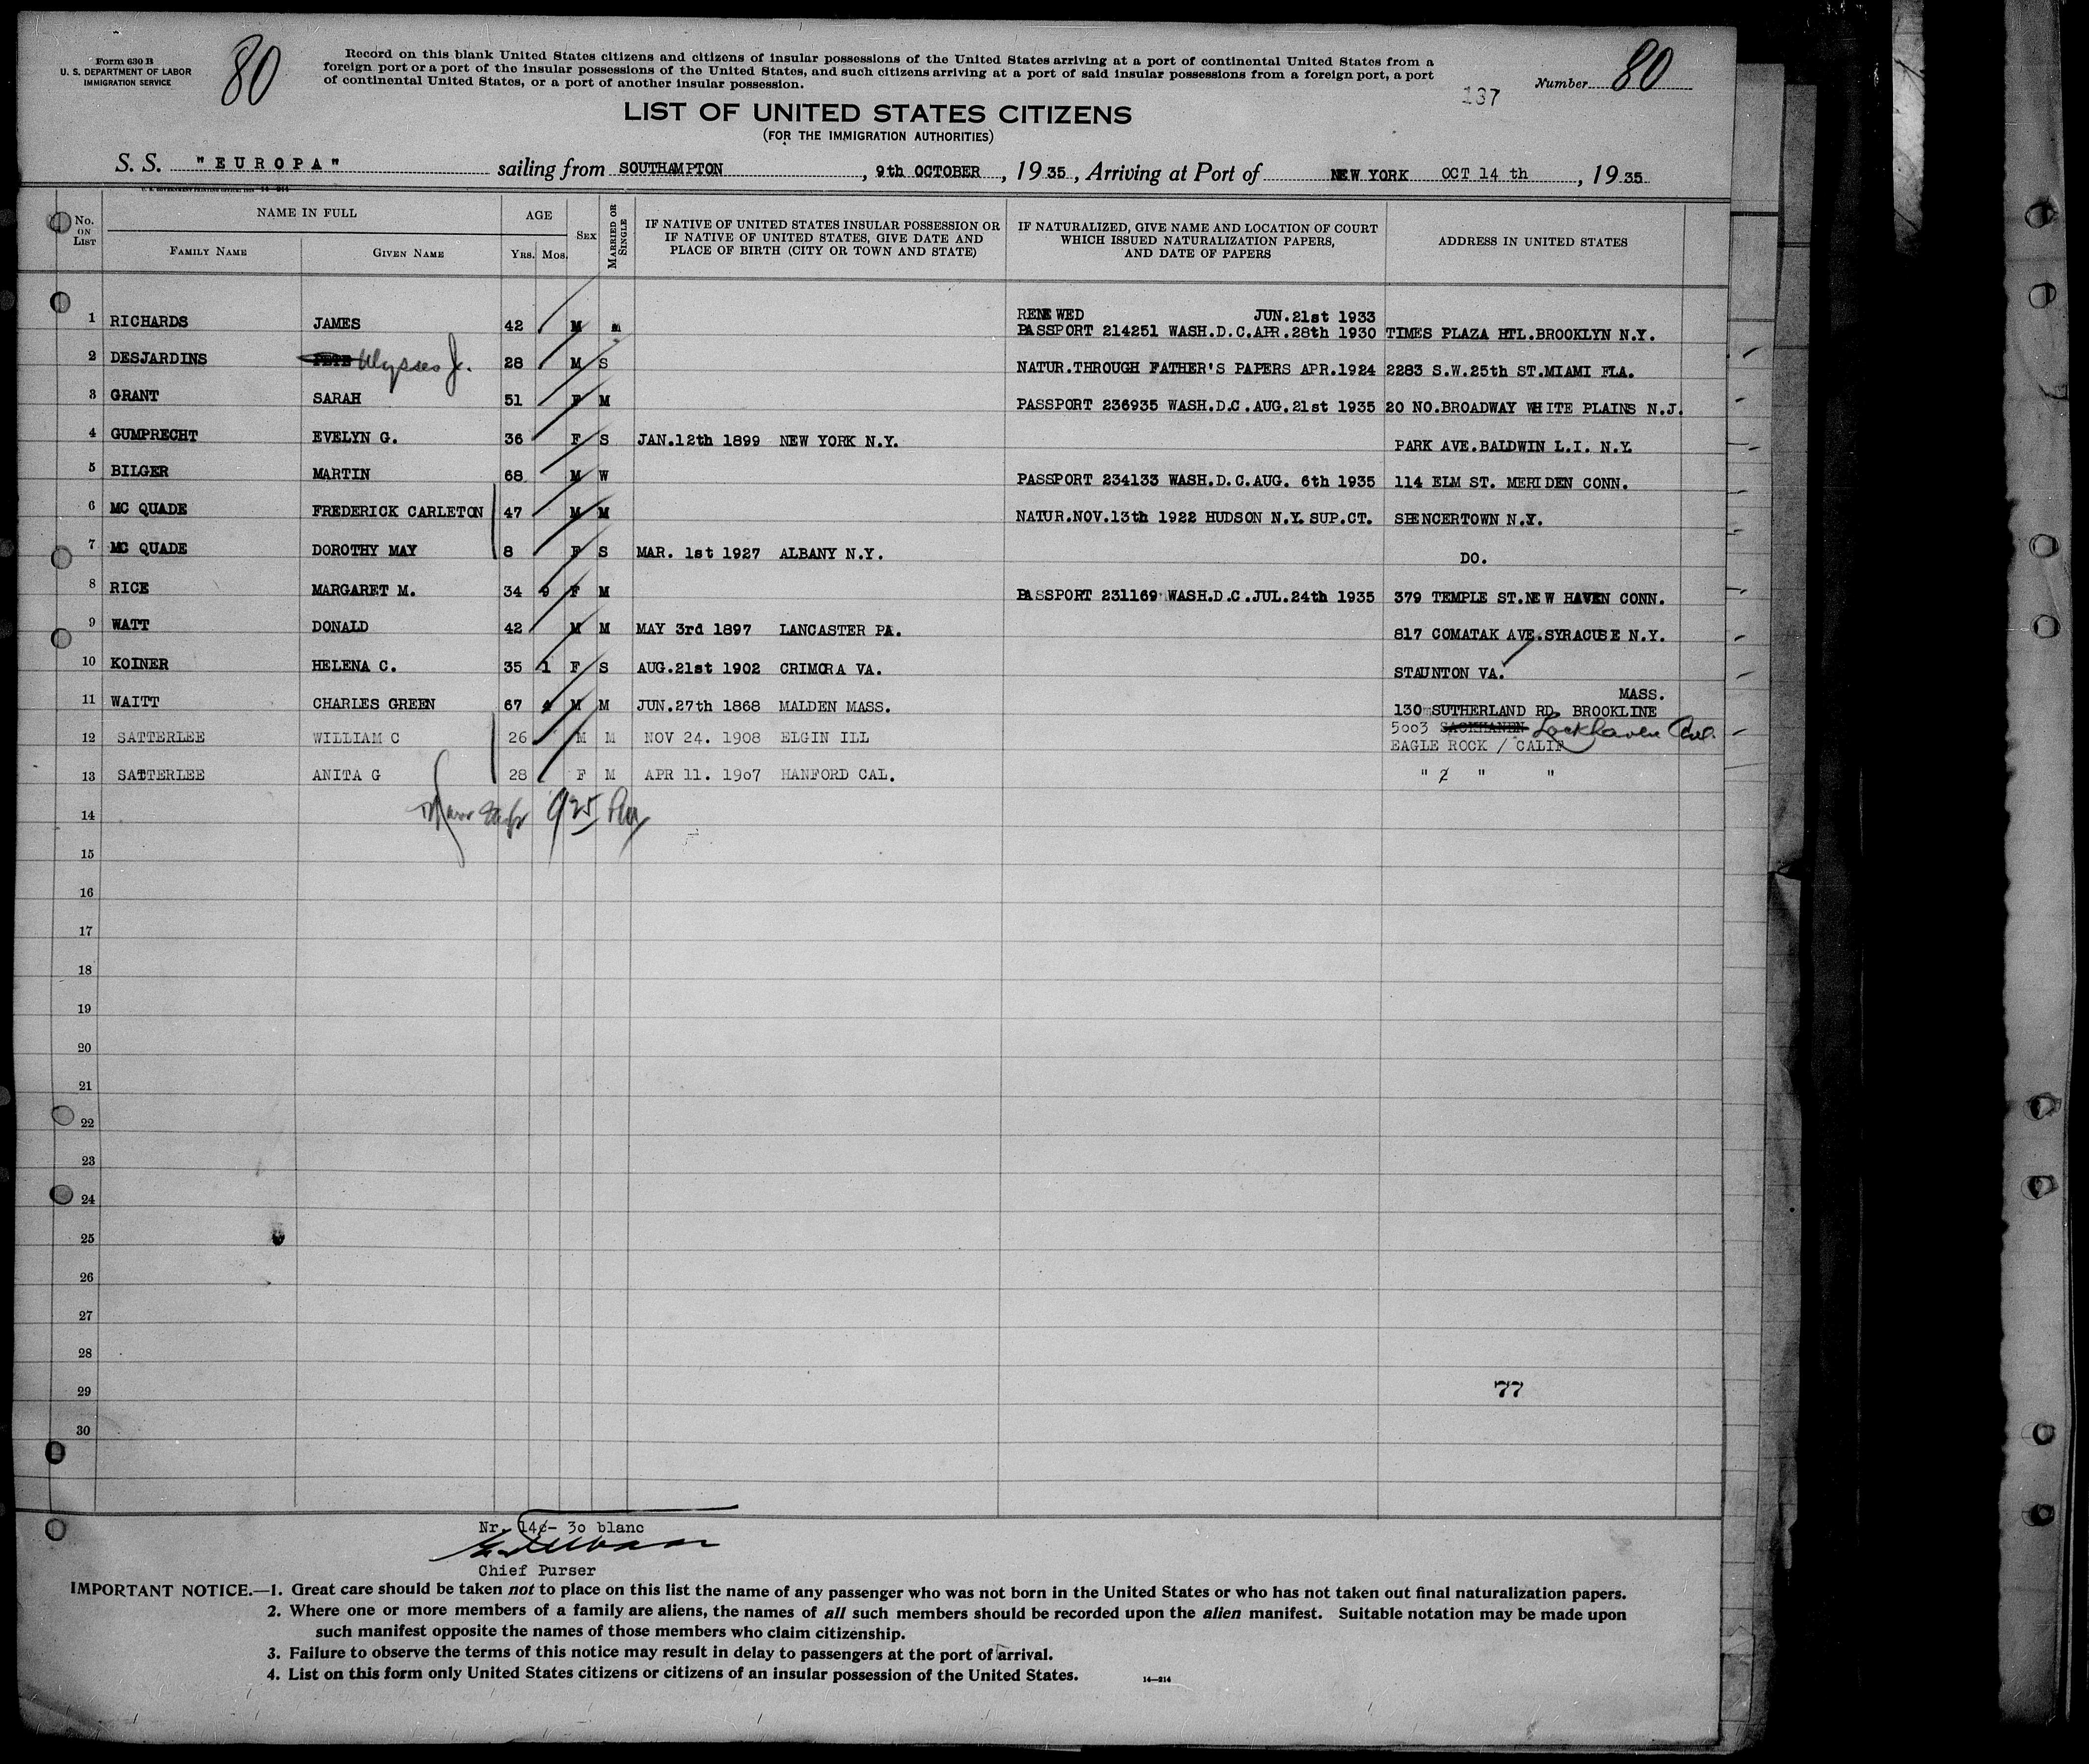 Form 630 B
U. S. DEPARTMENT OF LABOR
IMMIGRATION SERVICE
80
Record on this blank United States citizens and citizens of insular possessions of the United States arriving at a port of continental United States from a
foreign port or a port of the insular possessions of the United States, and such citizens arriving at a port of said insular possessions from a foreign port, a port
of continental United States, or a port of another insular possession.
Number 80
137
LIST OF UNITED STATES CITIZENS
(FOR THE IMMIGRATION AUTHORITIES)
S. S. "EUROPA" sailing from SOUTHAMPTON, 9th OCTOBER, 1935, Arriving at Port of NEW YORK OCT 14 th, 1935
No. ON LIST
NAME IN FULL
FAMILY NAME GIVEN NAME
AGE
YRS. MOS.
SEX
MARRIED OR SINGLE
IF NATIVE OF UNITED STATES INSULAR POSSESSION OR
IF NATIVE OF UNITED STATES, GIVE DATE AND
PLACE OF BIRTH (CITY OR TOWN AND STATE)
IF NATURALIZED, GIVE NAME AND LOCATION OF COURT
WHICH ISSUED NATURALIZATION PAPERS,
AND DATE OF PAPERS
ADDRESS IN UNITED STATES
RENEWED JUN.21st 1933
1 RICHARDS JAMES 42 M m PASSPORT 214251 WASH.D.C.APR.28th 1930 TIMES PLAZA HTL.BROOKLYN N.Y.
2 DESJARDINS PETE Ulysses J. 28 M S NATUR.THROUGH FATHER'S PAPERS APR.1924 2283 S.W.25th ST.MIAMI FLA.
3 GRANT SARAH 51 F M PASSPORT 236935 WASH.D.C.AUG.21st 1935 20 NO.BROADWAY WHITE PLAINS N.J.
4 GUMPRECHT EVELYN G. 36 F S JAN.12th 1899 NEW YORK N.Y. PARK AVE.BALDWIN L.I. N.Y.
5 BILGER MARTIN 68 M W PASSPORT 234133 WASH.D.C.AUG. 6th 1935 114 ELM ST. MERIDEN CONN.
6 MC QUADE FREDERICK CARLETON 47 M M NATUR.NOV.13th 1922 HUDSON N.Y. SUP.CT. SPENCERTOWN N.Y.
7 MC QUADE DOROTHY MAY 8 F S MAR. 1st 1927 ALBANY N.Y. DO.
8 RICE MARGARET M. 34 9 F M PASSPORT 231169 WASH.D.C.JUL.24th 1935 379 TEMPLE ST.NEW HAVEN CONN.
9 WATT DONALD 42 M M MAY 3rd 1897 LANCASTER PA. 817 COMATAK AVE.SYRACUSE N.Y.
10 KOINER HELENA C. 35 1 F S AUG.21st 1902 CRIMORA VA. STAUNTON VA.
MASS.
11 WAITT CHARLES GREEN 67 4 M M JUN.27th 1868 MALDEN MASS. 130 SUTHERLAND RD. BROOKLINE
12 SATTERLEE WILLIAM C 26 M M NOV 24. 1908 ELGIN ILL 5003 Lockhaven Ave.
EAGLE ROCK / CALIF
13 SATTERLEE ANITA G 28 F M APR 11. 1907 HANFORD CAL. " " "
14
925
15
16
17
18
19
20
21
22
23
24
25
26
27
28
29 77
30
Nr. 14c- 30 blanc
Chief Purser
IMPORTANT NOTICE.—1. Great care should be taken not to place on this list the name of any passenger who was not born in the United States or who has not taken out final naturalization papers.
2. Where one or more members of a family are aliens, the names of all such members should be recorded upon the alien manifest. Suitable notation may be made upon
such manifest opposite the names of those members who claim citizenship.
3. Failure to observe the terms of this notice may result in delay to passengers at the port of arrival.
4. List on this form only United States citizens or citizens of an insular possession of the United States.
14—214